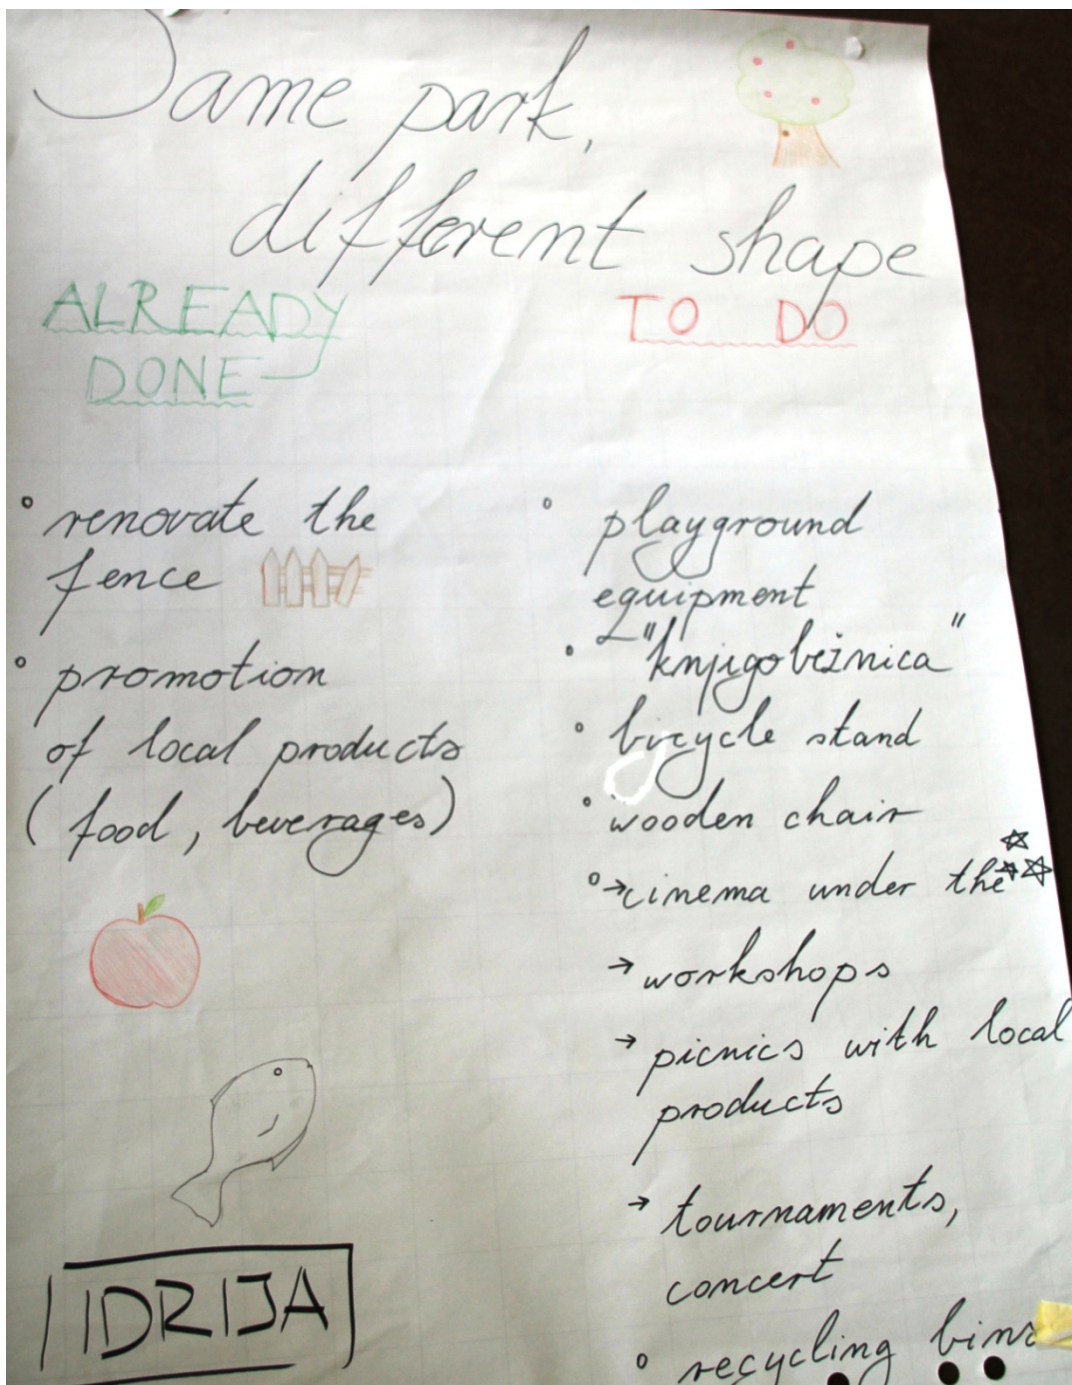 Same park,
different shape
ALREADY
DONE
TO DO
renovate the
fence
promotion
of local products
(food, beverages)
IDRIJA
playground
equipment
"knjigobežnica"
bicycle stand
wooden chair
→cinema under the
→workshops
→picnics with local
products
→tournaments,
concert
recycling bins